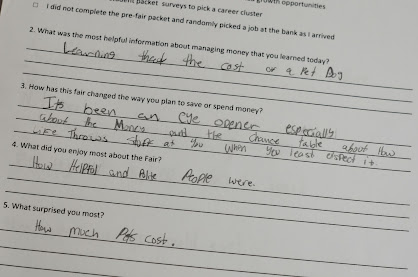 packet surveys to pick a career cluster
growth opportunities
□ I did not complete the pre-fair packet and randomly picked a job at the bank as I arrived
2. What was the most helpful information about managing money that you learned today?
Learning the cost of a Pet Dog
3. How has this fair changed the way you plan to save or spend money?
Its been an eye opener especially
about the Money and the chance table about How
Life Throws stuff at You When You least expect it
4. What did you enjoy most about the Fair?
How Helpful and Polite People were.
5. What surprised you most?
How much Pets cost.